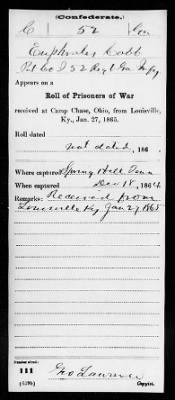 (Confederate.)
C 52 Ga
Euphrates Cobb
Pvt Co I 52 Reg't Ga Infy
Appears on a
Roll of Prisoners of War
received at Camp Chase, Ohio, from Louisville,
Ky., Jan. 27, 1865.
Roll dated
not dated, 186 .
Where captured Spring Hill Tenn
When captured Dec 18, 1864
Remarks: Received from
Louisville Ky Jan 27 1865
Number of roll:
111
(639b) Geo Lawrence
Copyist.